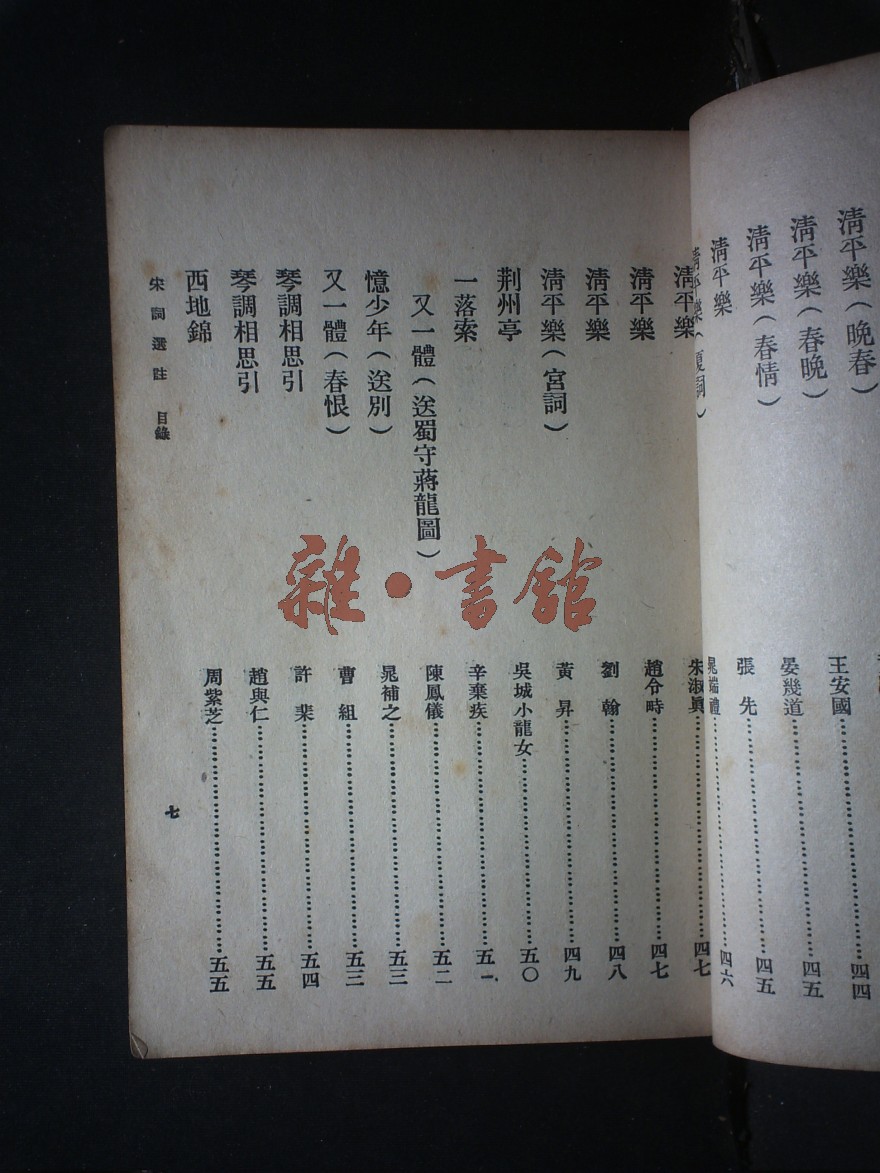 清平樂（晚春） 王安國 四四
清平樂（春晚） 晏幾道 四五
清平樂（春情） 張先 四五
清平樂 晁端禮 四六
清平樂（夏詞）
清平樂 朱淑眞 四七
清平樂 趙令時 四七
清平樂 劉翰 四八
清平樂（宮詞） 黃昇 四九
荆州亭 吳城小龍女 五〇
一落索 辛棄疾 五一
又一體（送蜀守蔣龍圖） 陳鳳儀 五二
憶少年（送別） 晁補之 五三
又一體（春恨） 曹組 五三
琴調相思引 許棐 五四
琴調相思引 趙與仁 五五
西地錦 周紫芝 五五
宋詞選註 目錄 七
雜·書館